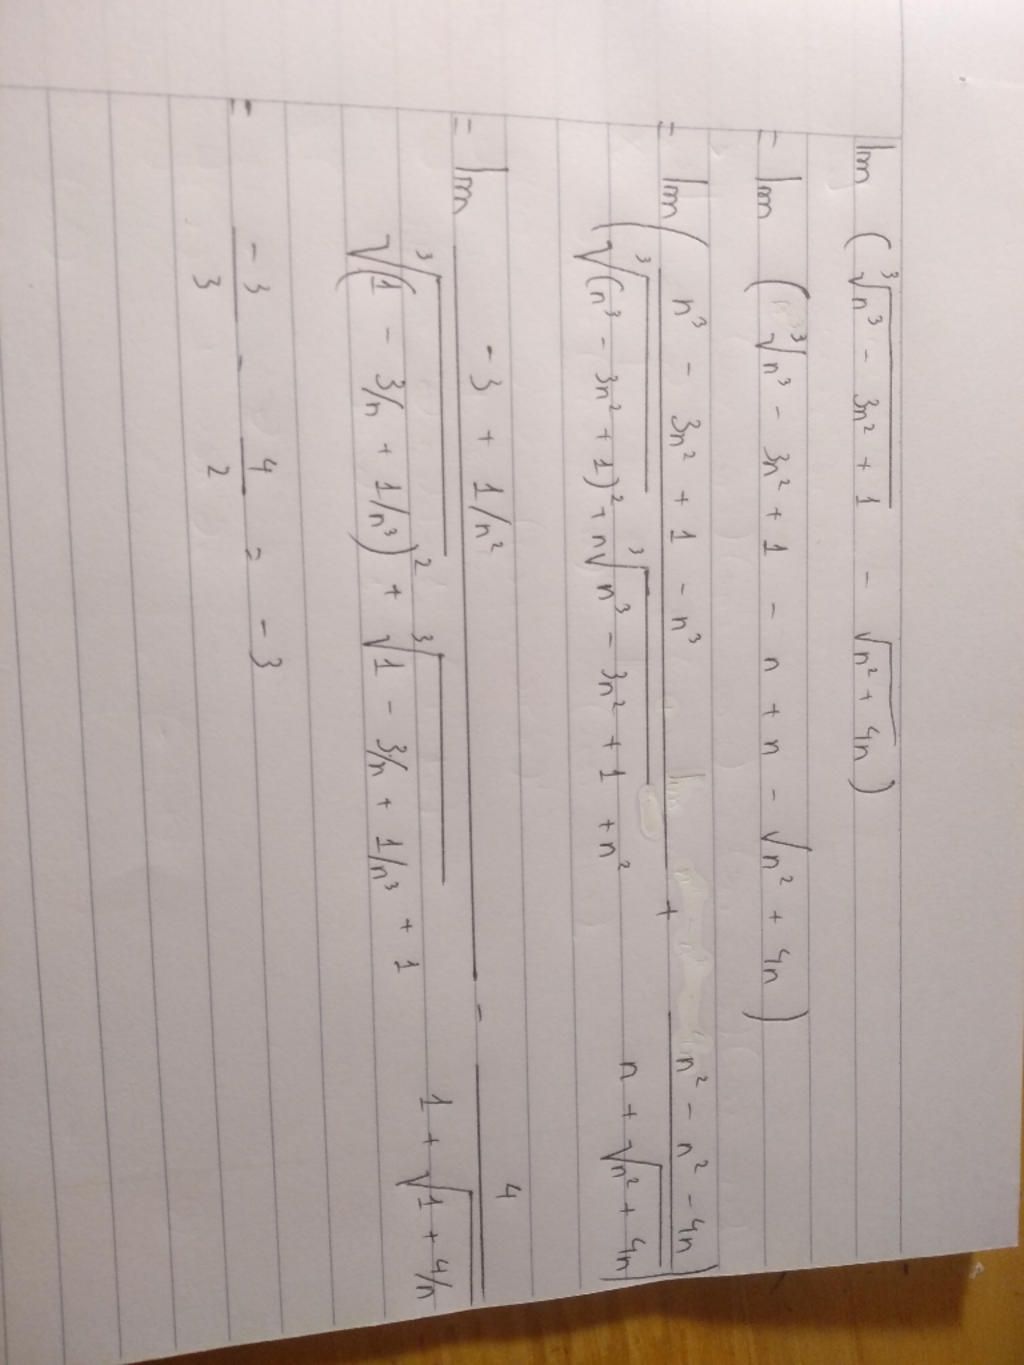 lim (∛(n³ - 3n² + 1) - √(n² + 4n))
= lim (∛(n³ - 3n² + 1) - n + n - √(n² + 4n))
= lim ( (n³ - 3n² + 1 - n³) / (∛((n³ - 3n² + 1)²) + n∛(n³ - 3n² + 1) + n²) + (n² - n² - 4n) / (n + √(n² + 4n)) )
= lim (-3 + 1/n²) / (∛((1 - 3/n + 1/n³)²) + ∛(1 - 3/n + 1/n³) + 1) - 4 / (1 + √(1 + 4/n))
= -3/3 - 4/2 = -3